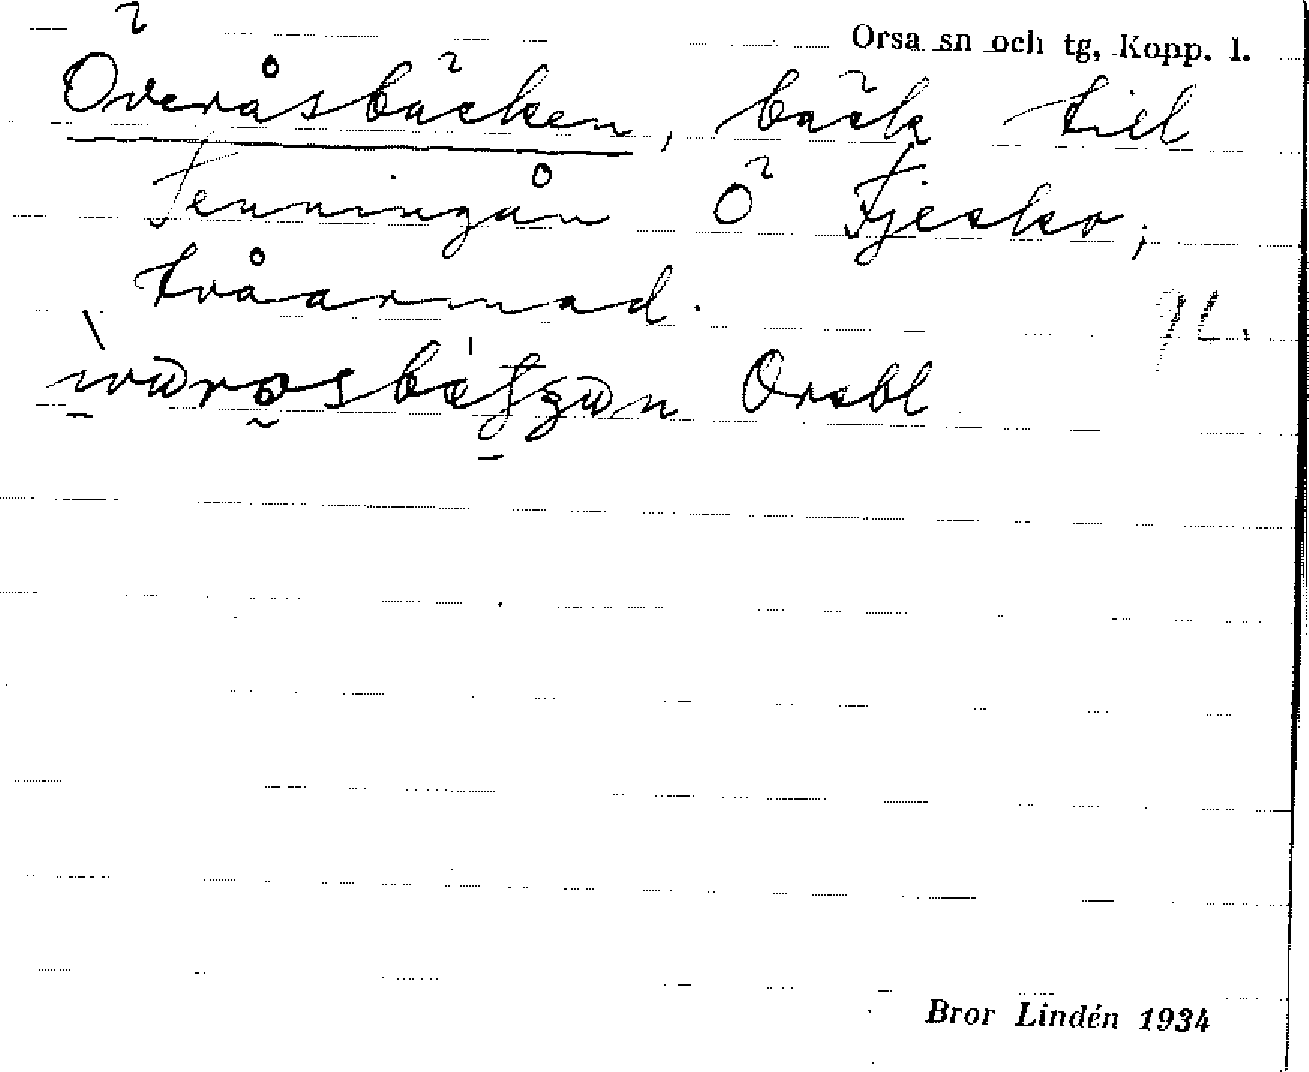 Orsa sn och tg, Kopp. l.
Överåsbäcken, bäck till
Tenningån Ö Fjesko;
tvåarmad.
Orsbl
Bror Lindén 1934